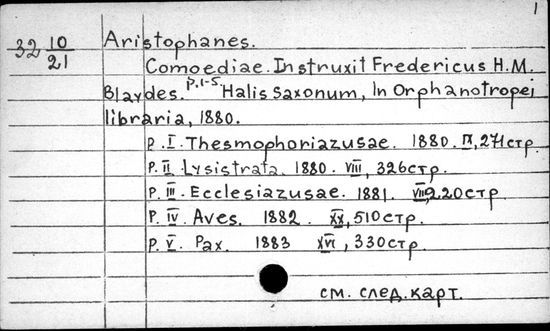 1
32 10/21 Aristophanes.
Comoediae. Instruxit Fredericus H.M.
Blaydes. P.I-5. Halis Saxonum, In Orphanotropei
libraria, 1880.
P. I. Thesmophoriazusae. 1880. IX, 271 стр.
P. II. Lysistrata. 1880. VIII, 326 стр.
P. III. Ecclesiazusae. 1881. VIII, 220 стр
P. IV. Aves. 1882. XX, 510 стр.
P. V. Pax. 1883 XVI, 330 стр.
см. след. карт.